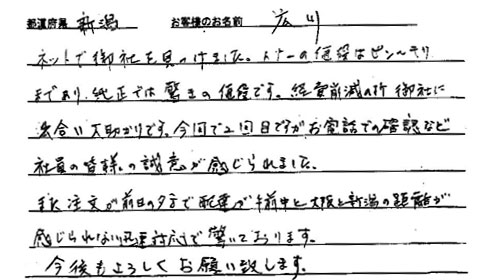 都道府県 新潟 お客様のお名前 広川
ネットで御社を見つけました。トナーの価段はピン〜キリ
まであり、純正では驚きの価段です。経費削減の折 御社に
出合い大助かりです。今回で2回目ですがお電話での確認など
社員の皆様の誠意が感じられました。
また注文が前日の夕方で配達が午前中と大阪と新潟の距離が
感じられない迅速対応で驚いております。
今後もよろしくお願い致します。